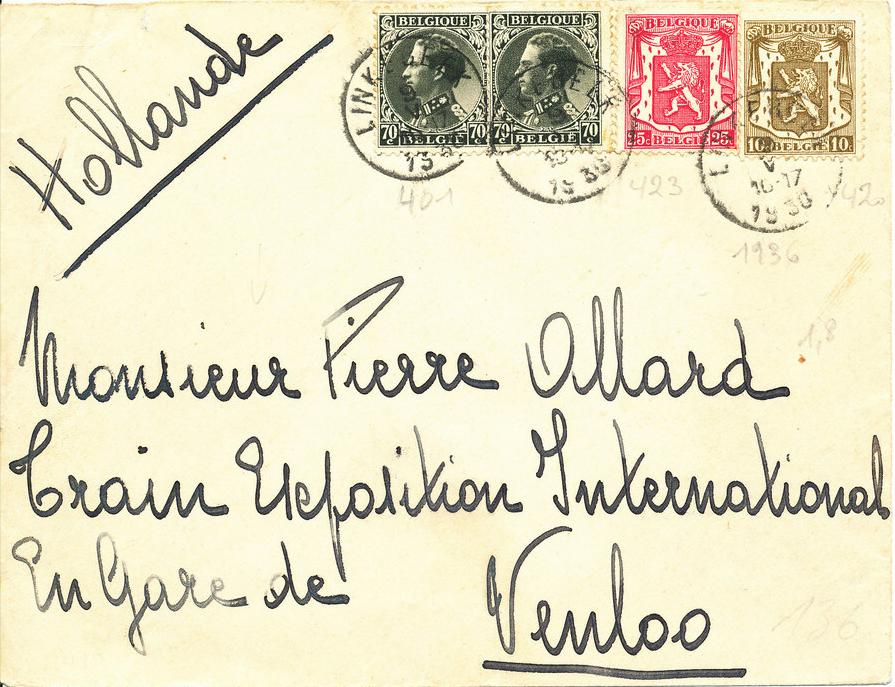 Hollande
BELGIQUE BELGIQUE BELGIQUE BELGIQUE
70 BELGIË 70 70 BELGIË 70 25c BELGIË 25c 10c BELGIË 10c
16-17
1936
401 423 420
1936
1,8
Monsieur Pierre Allard
Train Exposition International
En Gare de
Venloo
136